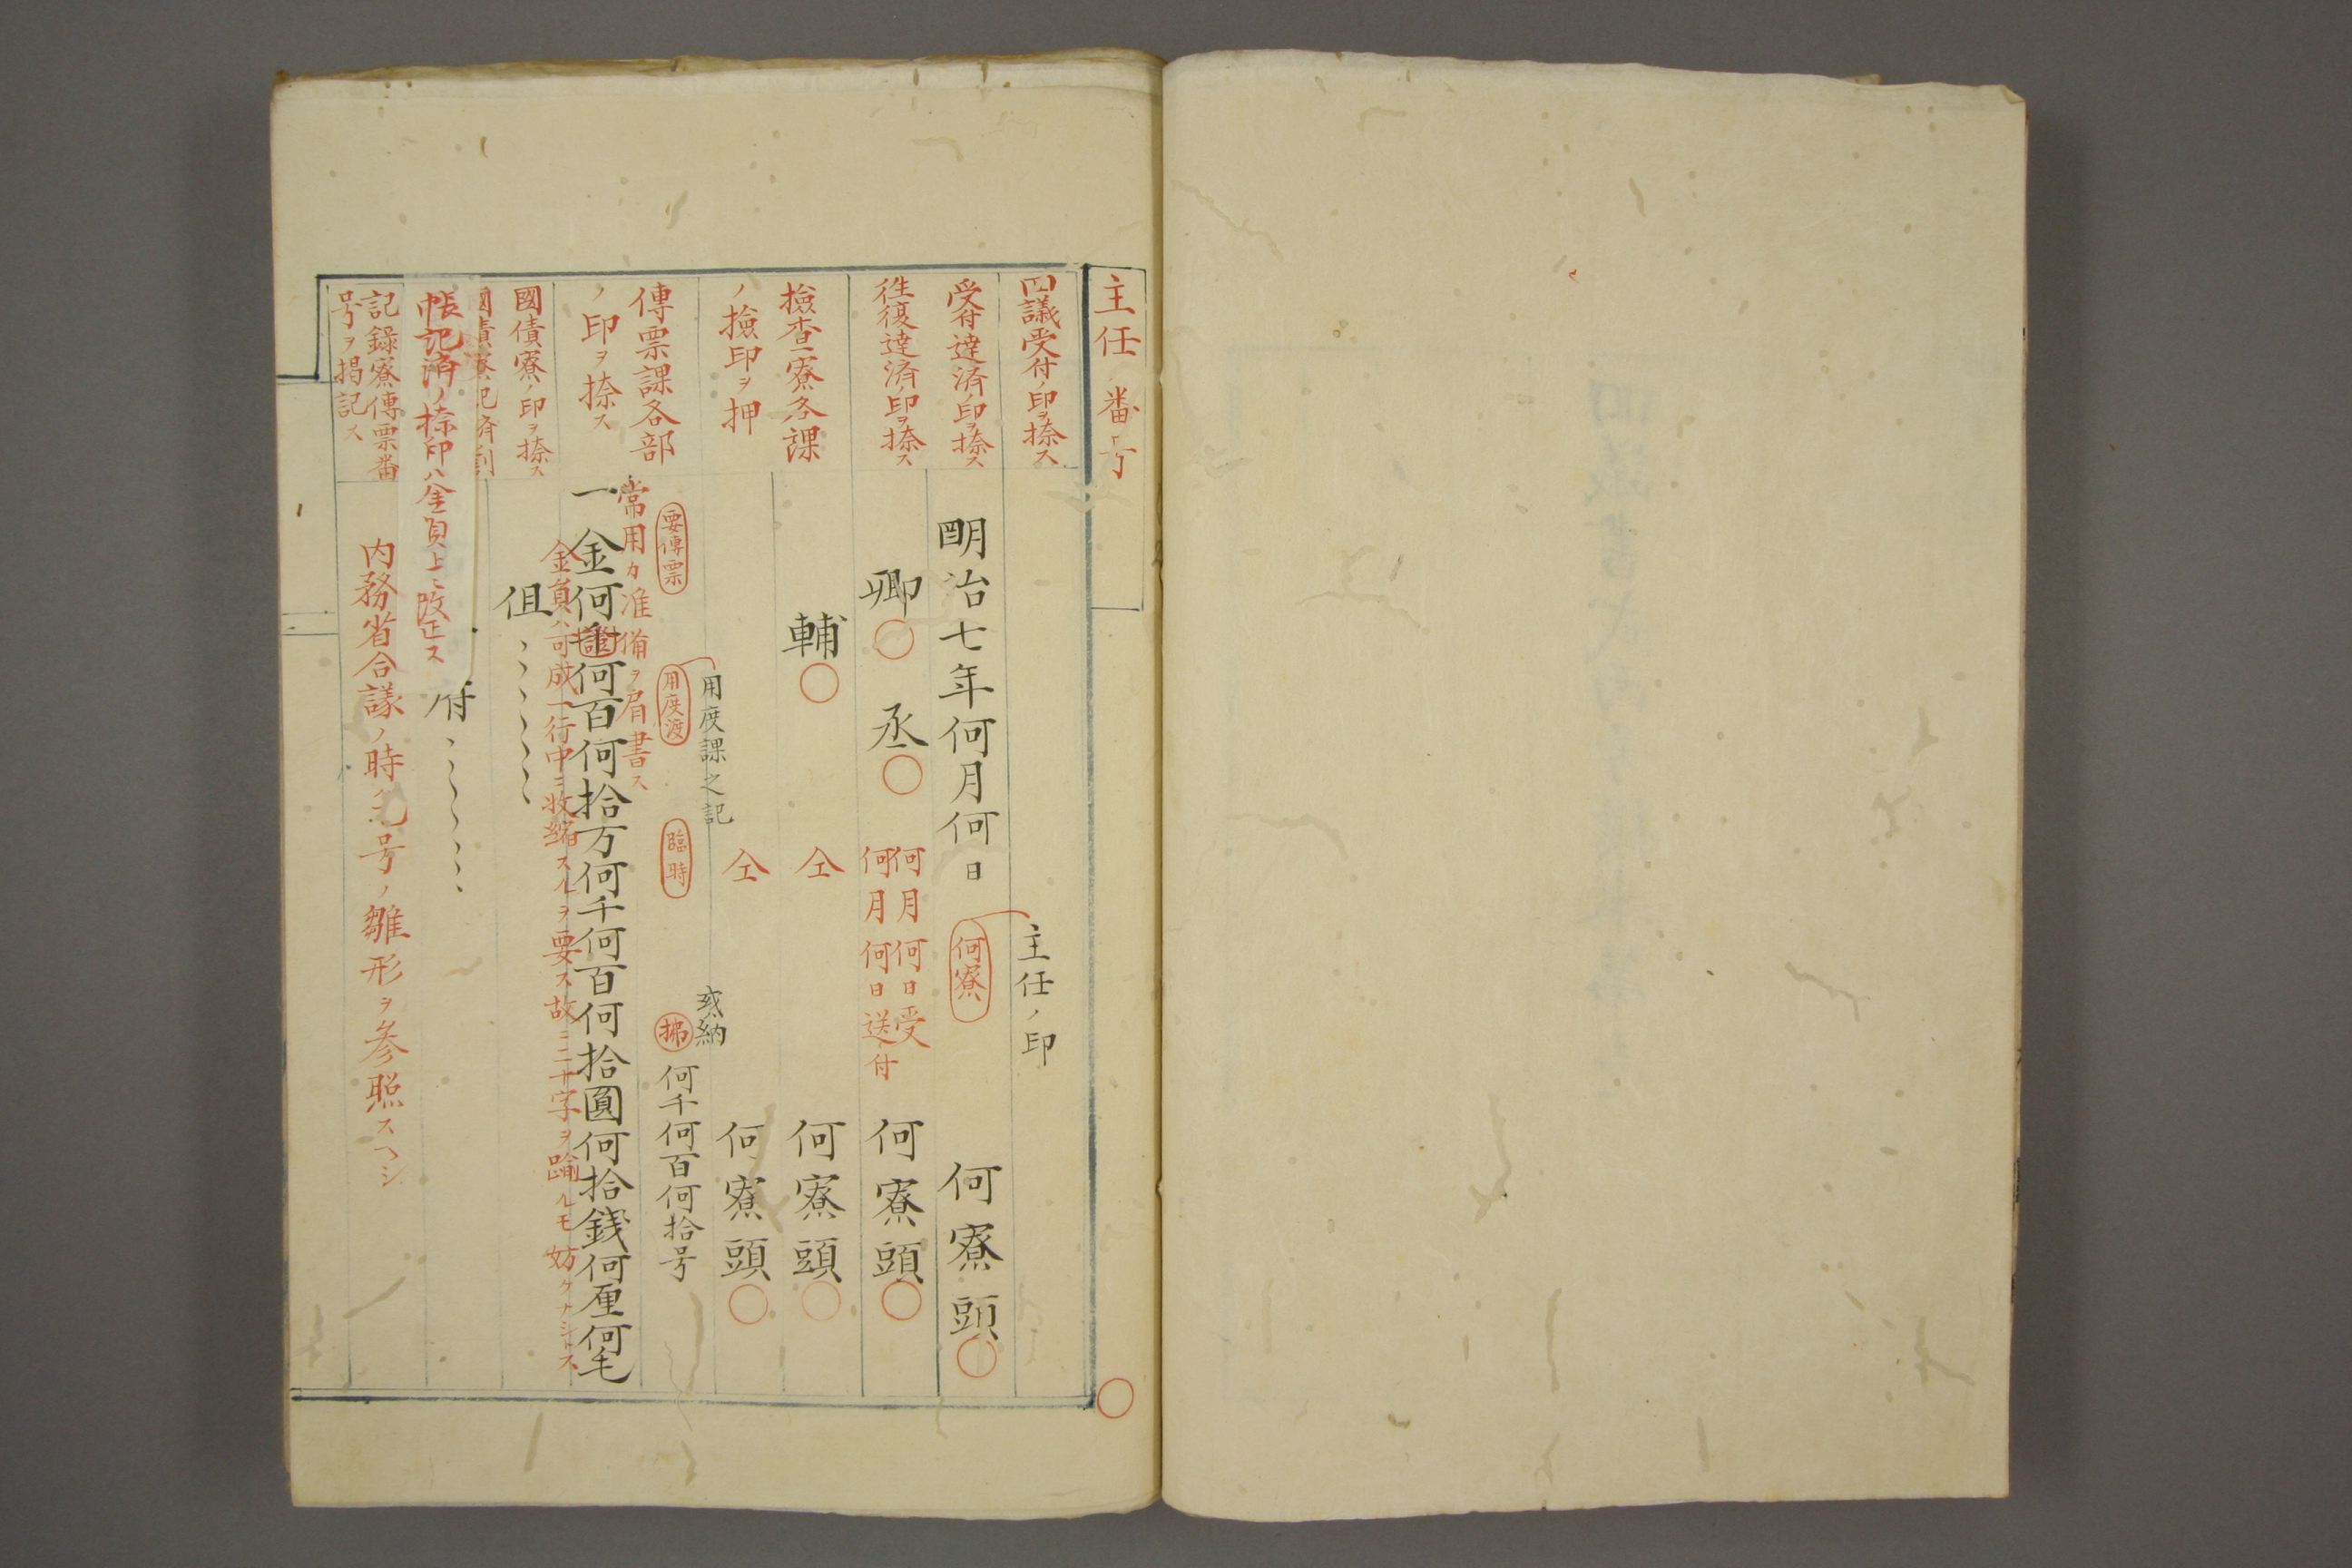 主任番号
回議受付ノ印ヲ捺ス
受付達済ノ印ヲ捺ス
往復達済ノ印ヲ捺ス
撿査寮各課
ノ撿印ヲ押
傳票課各部
ノ印ヲ捺ス
國債寮ノ印ヲ捺ス
帳記済ノ捺印ハ金員上ニ改正ス
記録寮傳票番
号ヲ掲記ス
主任ノ印
明治七年何月何日
何寮
何寮頭
卿
丞
何月何日受
何月何日送付
何寮頭
輔
仝
何寮頭
仝
何寮頭
用度課之記
或納
要傳票
用度渡
臨時
拂
何千何百何拾号
常用カ准備ヲ肩書ス
一金何百何拾万何千何百何拾圓何拾銭何厘何毛
金員ハ可成一行中ニ收縮スルヲ要ス故ニ二十字ヲ踰ルモ妨ケナシトス
但
付
内務省合議ノ時ハ号ノ雛形ヲ参照スヘシ